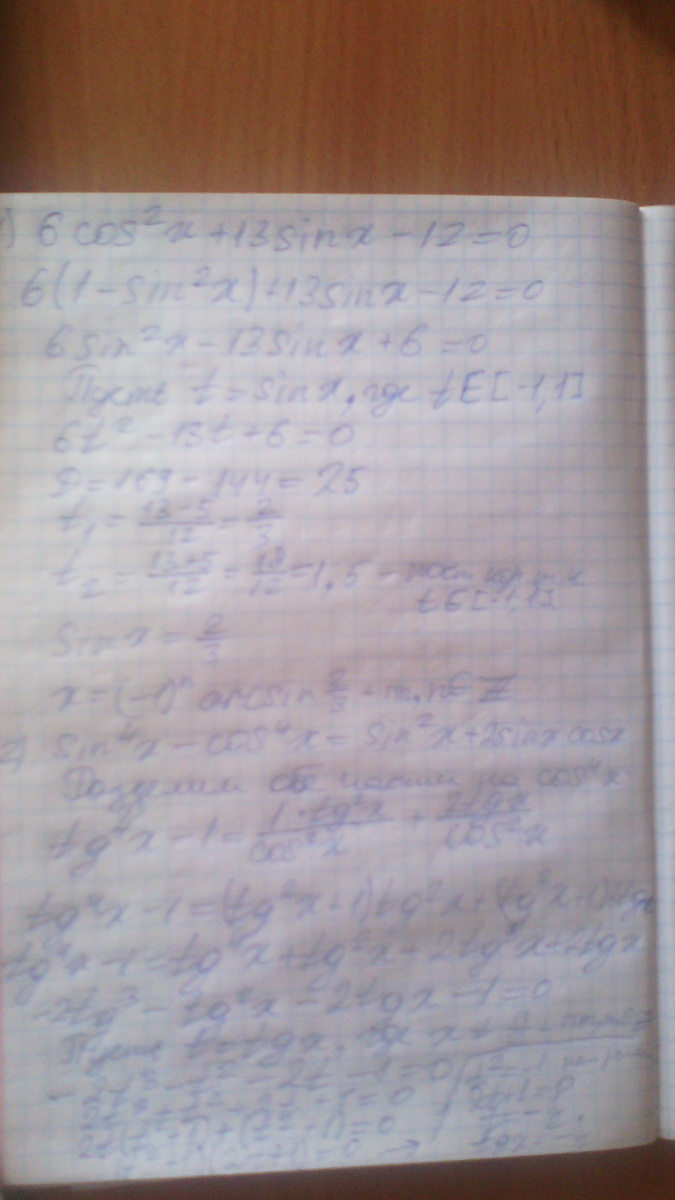 1) 6cos²x+13sinx-12=0
6(1-sin²x)+13sinx-12=0
6sin²x-13sinx+6=0
Пусть t=sinx, где t∈[-1,1]
6t²-13t+6=0
D=169-144=25
t₁=(13-5)/12=2/3
t₂=(13+5)/12=18/12=1,5 - т.к. t∈[-1,1]
sinx=2/3
x=(-1)ⁿ arcsin 2/3 + πn, n∈Z
2) sin⁴x-cos⁴x=sin²x+2sinxcosx
Разделим обе части на cos⁴x
tg⁴x-1=1·tg²x/cos²x+2tgx/cos²x
tg⁴x-1=(tg²x+1)tg²x+(tg²x+1)2tgx
tg⁴x-1=tg⁴x+tg²x+2tg³x+2tgx
-2tg³-tg²x-2tgx-1=0
Пусть t=tgx, где x≠
-2t³-t²-2t-1=0
2t³+t²+2t+1=0